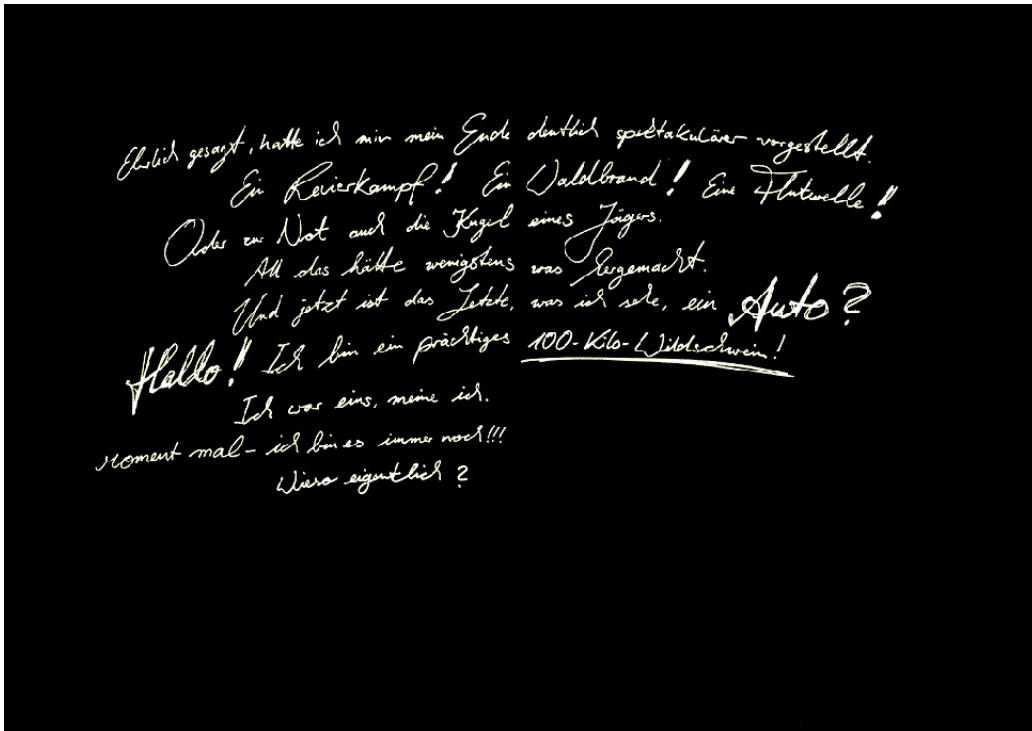 Ehrlich gesagt, hatte ich mir mein Ende deutlich spektakulärer vorgestellt.
Ein Revierkampf! Ein Waldbrand! Eine Flutwelle!
Oder zur Not auch die Kugel eines Jägers.
All das hätte wenigstens was hergemacht.
Und jetzt ist das Letzte, was ich sehe, ein Auto?
Hallo! Ich bin ein prächtiges 100-Kilo-Wildschwein!
Ich war eins, meine ich.
Moment mal - ich bin es immer noch!!!
Wieso eigentlich?